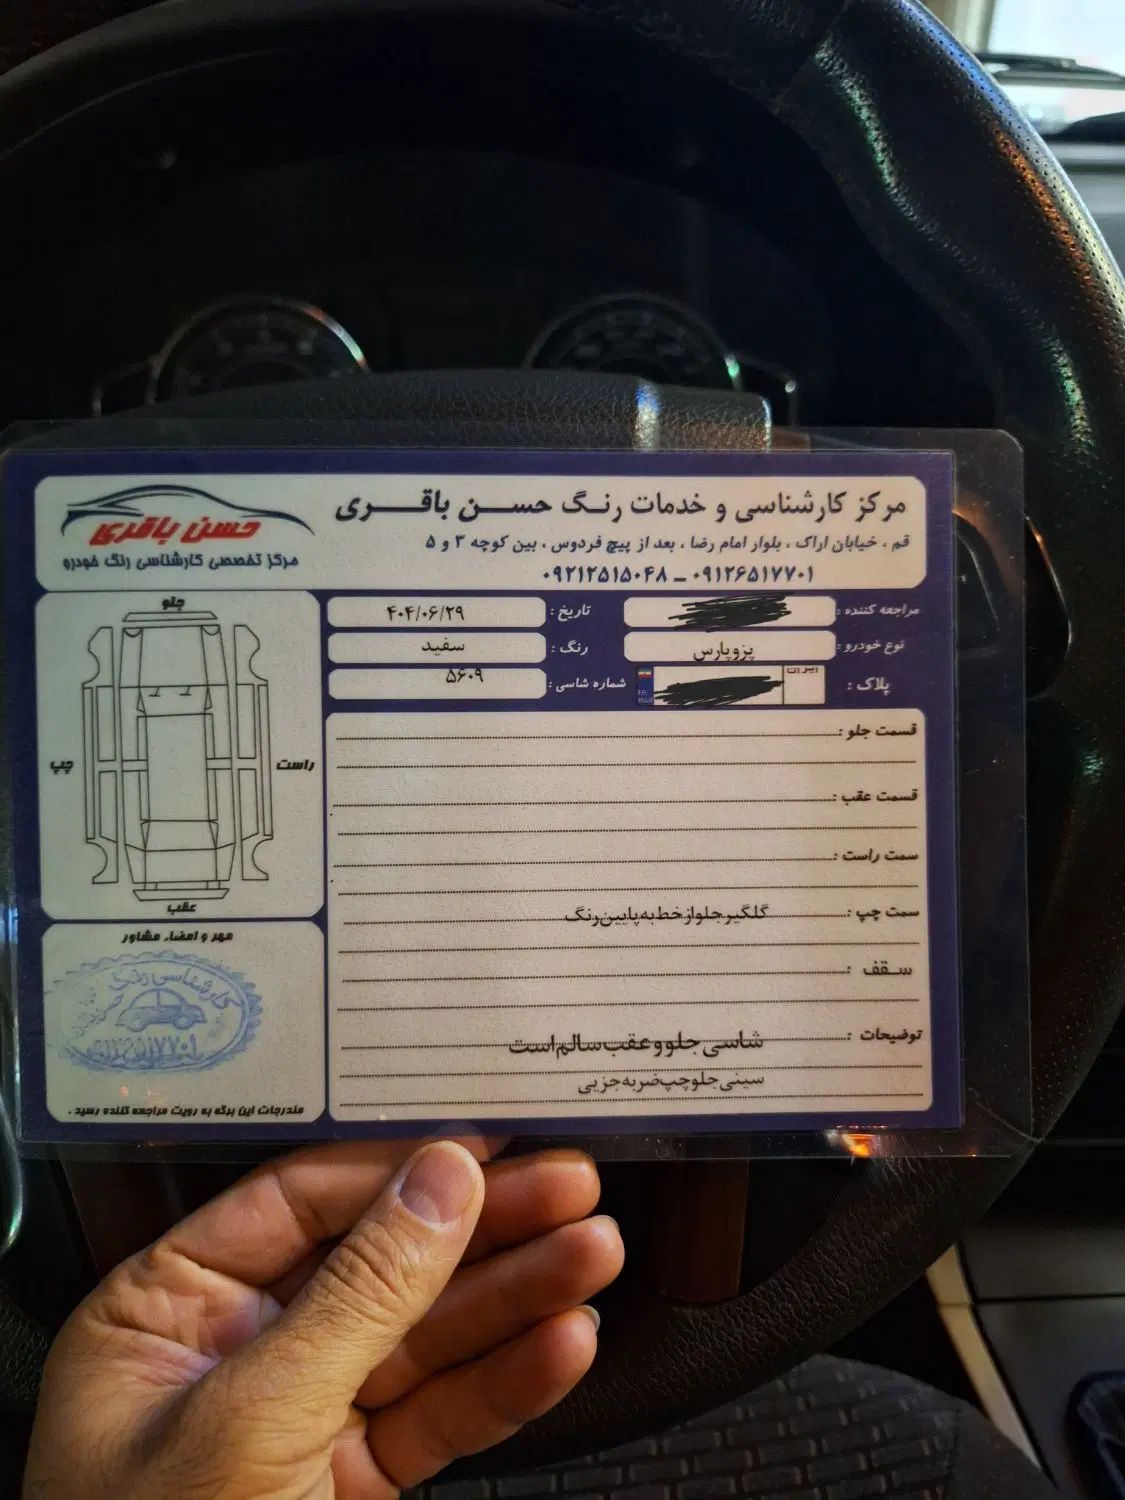 مرکز کارشناسی و خدمات رنگ حسن باقری
قم ، خیابان اراک ، بلوار امام رضا ، بعد از پیچ فردوس ، بین کوچه ۳ و ۵
۰۹۱۲۶۵۱۷۷۰۱ ـ ۰۹۲۱۲۵۱۵۰۴۸
حسن باقری
مرکز تخصصی کارشناسی رنگ خودرو
مراجعه کننده :
تاریخ : ۴۰۴/۰۶/۲۹
نوع خودرو : پژوپارس
رنگ : سفید
پلاک :
شماره شاسی : ۵۶۰۹
جلو
راست
چپ
عقب
قسمت جلو :
قسمت عقب :
سمت راست :
سمت چپ : گلگیرجلوازخط‌به‌پایین‌رنگ
سقف :
توضیحات : شاسی جلووعقب‌سالم‌است
سینی‌جلوچپ‌ضربه‌جزیی
مهر و امضاء مشاور
کارشناسی رنگ
۰۹۱۲۶۵۱۷۷۰۱
مندرجات این برگه به رویت مراجعه کننده رسید .